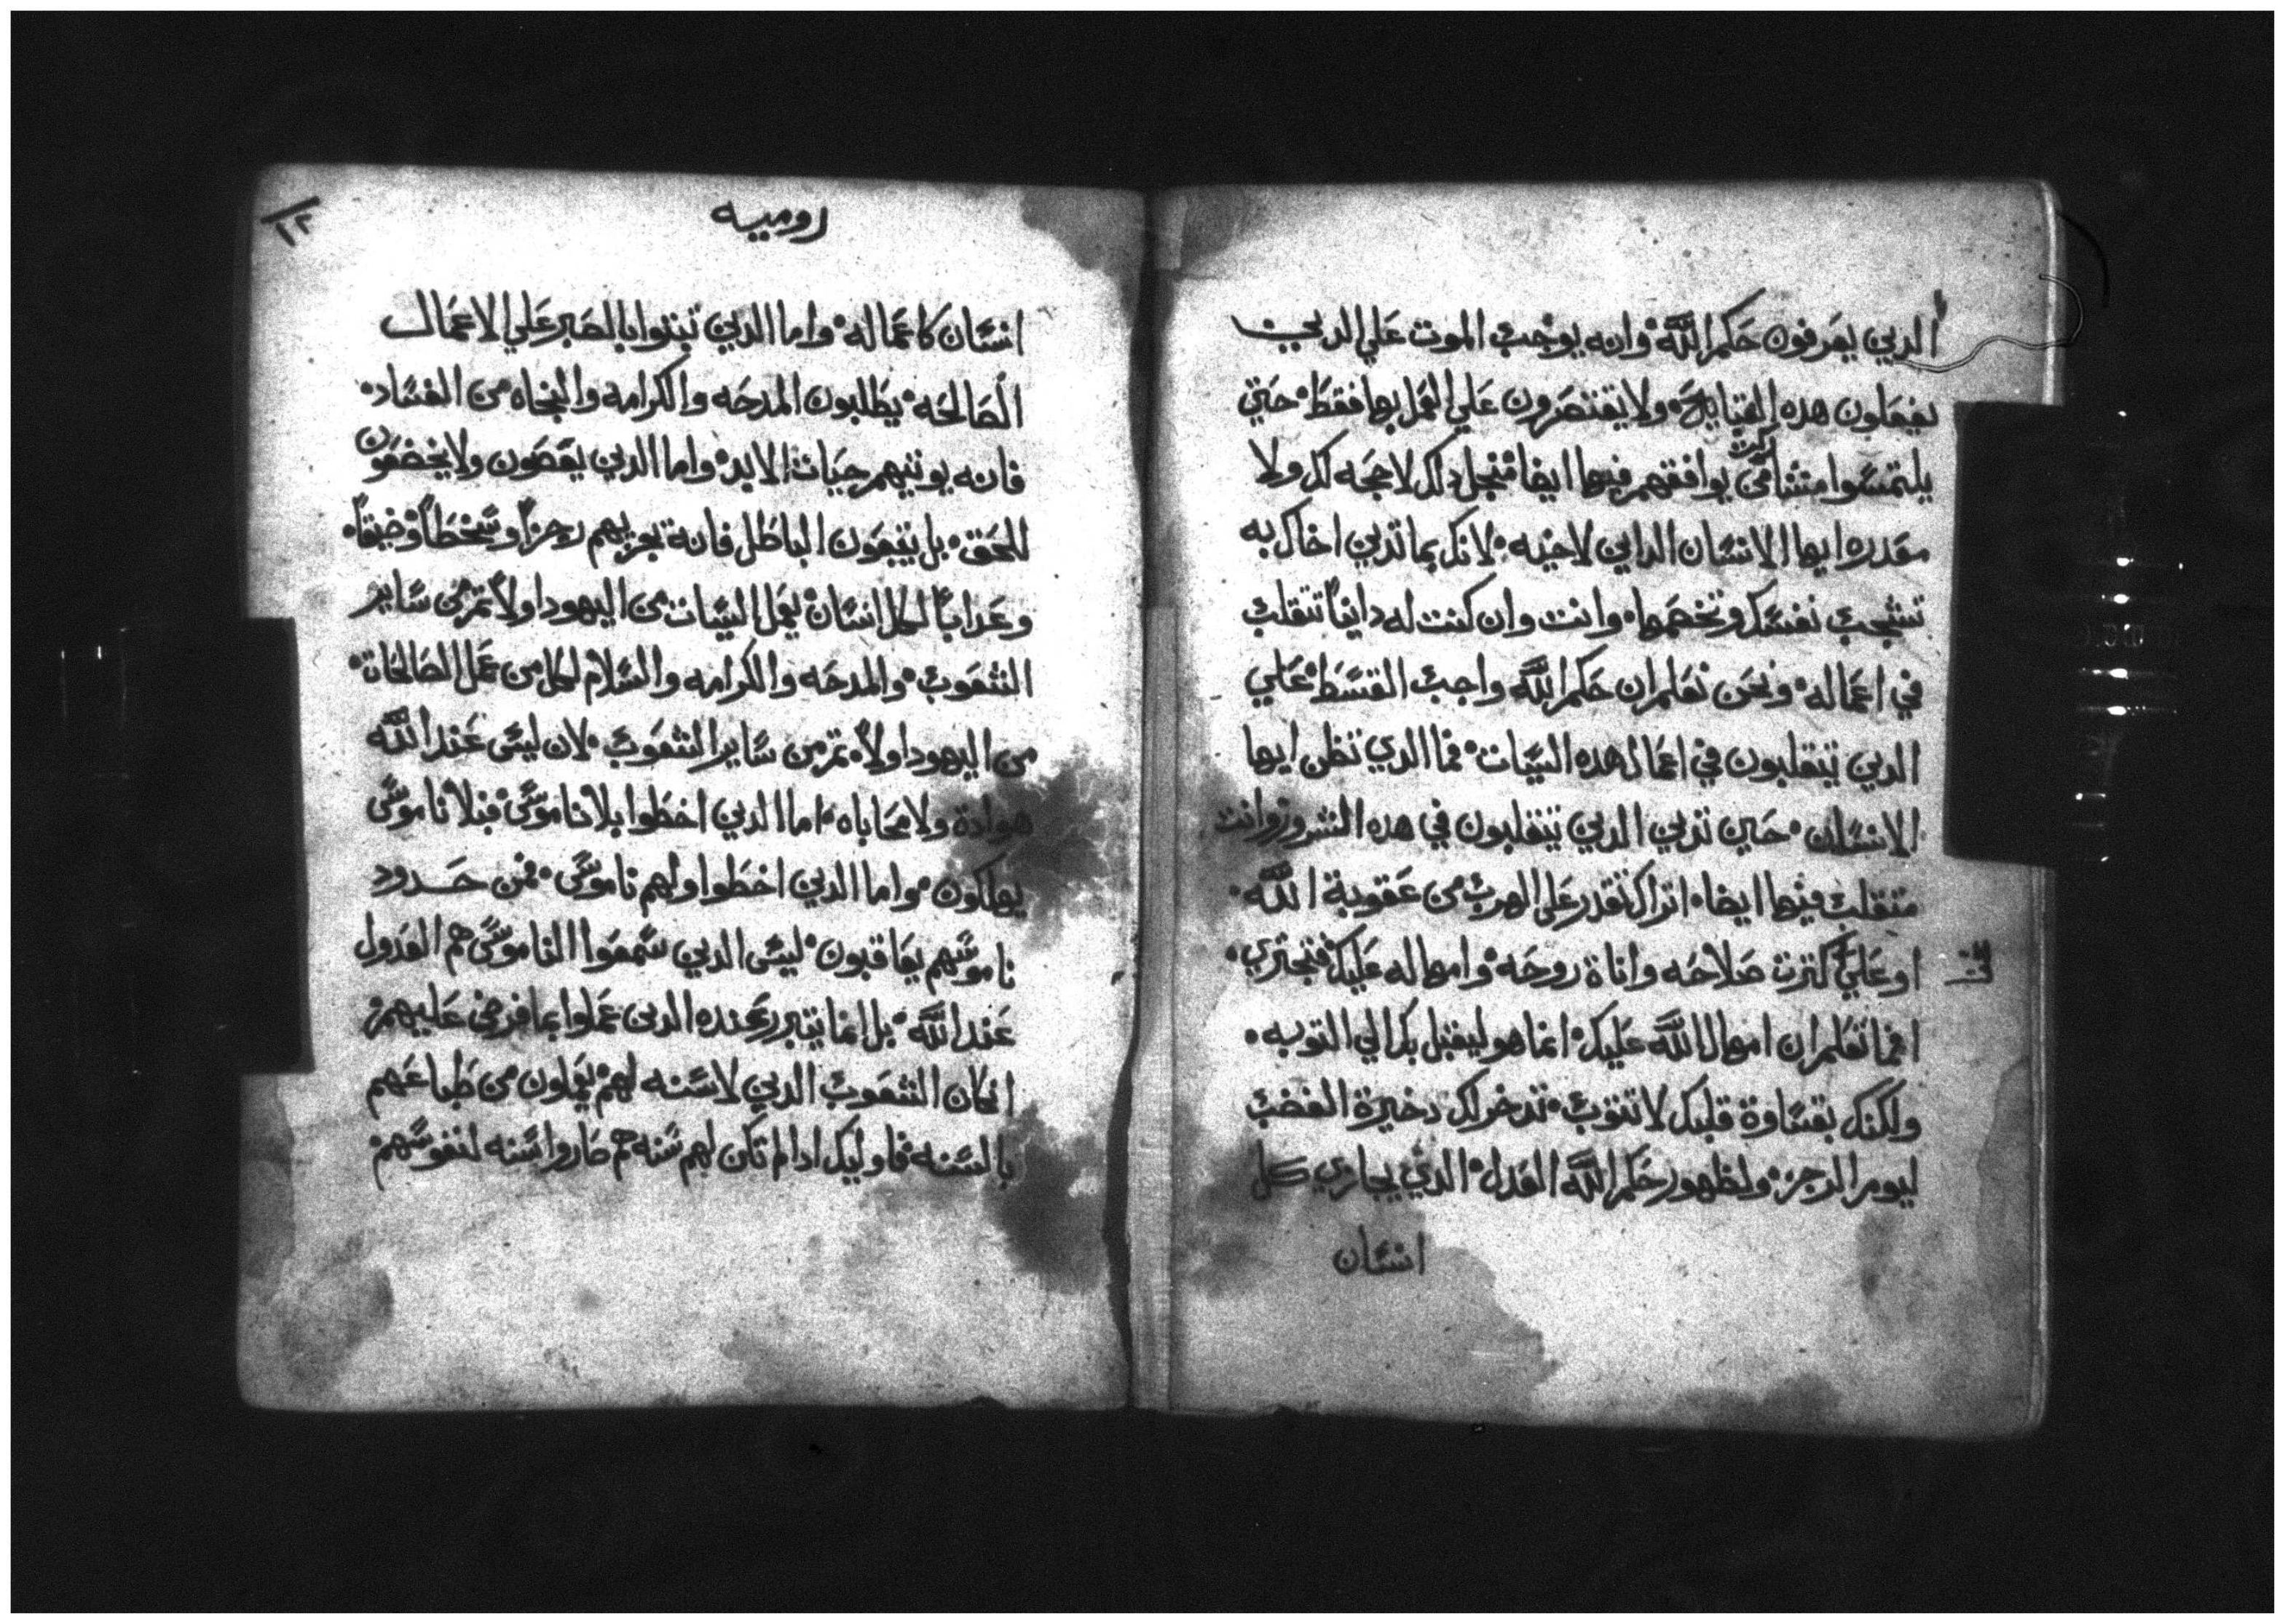 الدين يعرفون حكم الله وانه يوجب الموت علي الدين
يفعلون هده القبايح ولا يقتصرون علي العمل بها فقط حتي
يلتمسوا من يوافقهم فيها ايضا فمنجل دلك لا حجه لك ولا
مقدره ايها الانسان الداين لاخيه لانك بما تدين اخاك به
تشجب نفسك وتخصمها وانت وان كنت له داينا تتقلب
في اعماله ونحن نعلم ان حكم الله واجب القسط علي
الدين يتقلبون في اعمال هده السيات فما الدي تظن ايها
الانسان حين تدين الدين يتقلبون في هده الشرور وانت
متقلب فيها ايضا اتراك تقدر علي الهرب من عقوبة الله
او علي كترت صلاحه واناة روحه وامهاله عليك تجتري
اما تعلم ان امهال الله عليك انما هو ليقبل بك الي التوبه
ولكنك بقساوة قلبك لا تتوب تدخر لك دخيرة الغضب
ليوم الرجز ولظهور حكم الله العدل الدي يجازي كل
انسان
١٢
روميه
انسان كاعماله واما الدين تبتوا بالصبر علي الاعمال
الصالحه يطلبون المدحه والكرامه والنجاه من الفساد
فانه يوتيهم حيات الابد واما الدين يعصون ولا يخضعون
للحق بل يتبعون الباطل فانه يجزيهم رجزا وسخطا وضيقا
وعدابا لكل انسان يعمل السيات من اليهود اولا تم من ساير
الشعوب والمدحه والكرامه والسلام لكل من عمل الصالحات
من اليهود اولا تم من ساير الشعوب لان ليس عند الله
هوادة ولا محاباه اما الدين اخطوا بلا ناموس فبلا ناموس
يهلكون واما الدين اخطوا ولهم ناموس فمن حدود
ناموسهم يعاقبون ليس الدين سمعوا الناموس هم العدول
عند الله بل انما يتبرر عنده الدين عملوا بما فرض عليهم
ان كان الشعوب الدين لا سنه لهم يعملون من طباعهم
بالسنه فاوليك ادا لم تكن لهم سنه هم صاروا سنه لنفوسهم